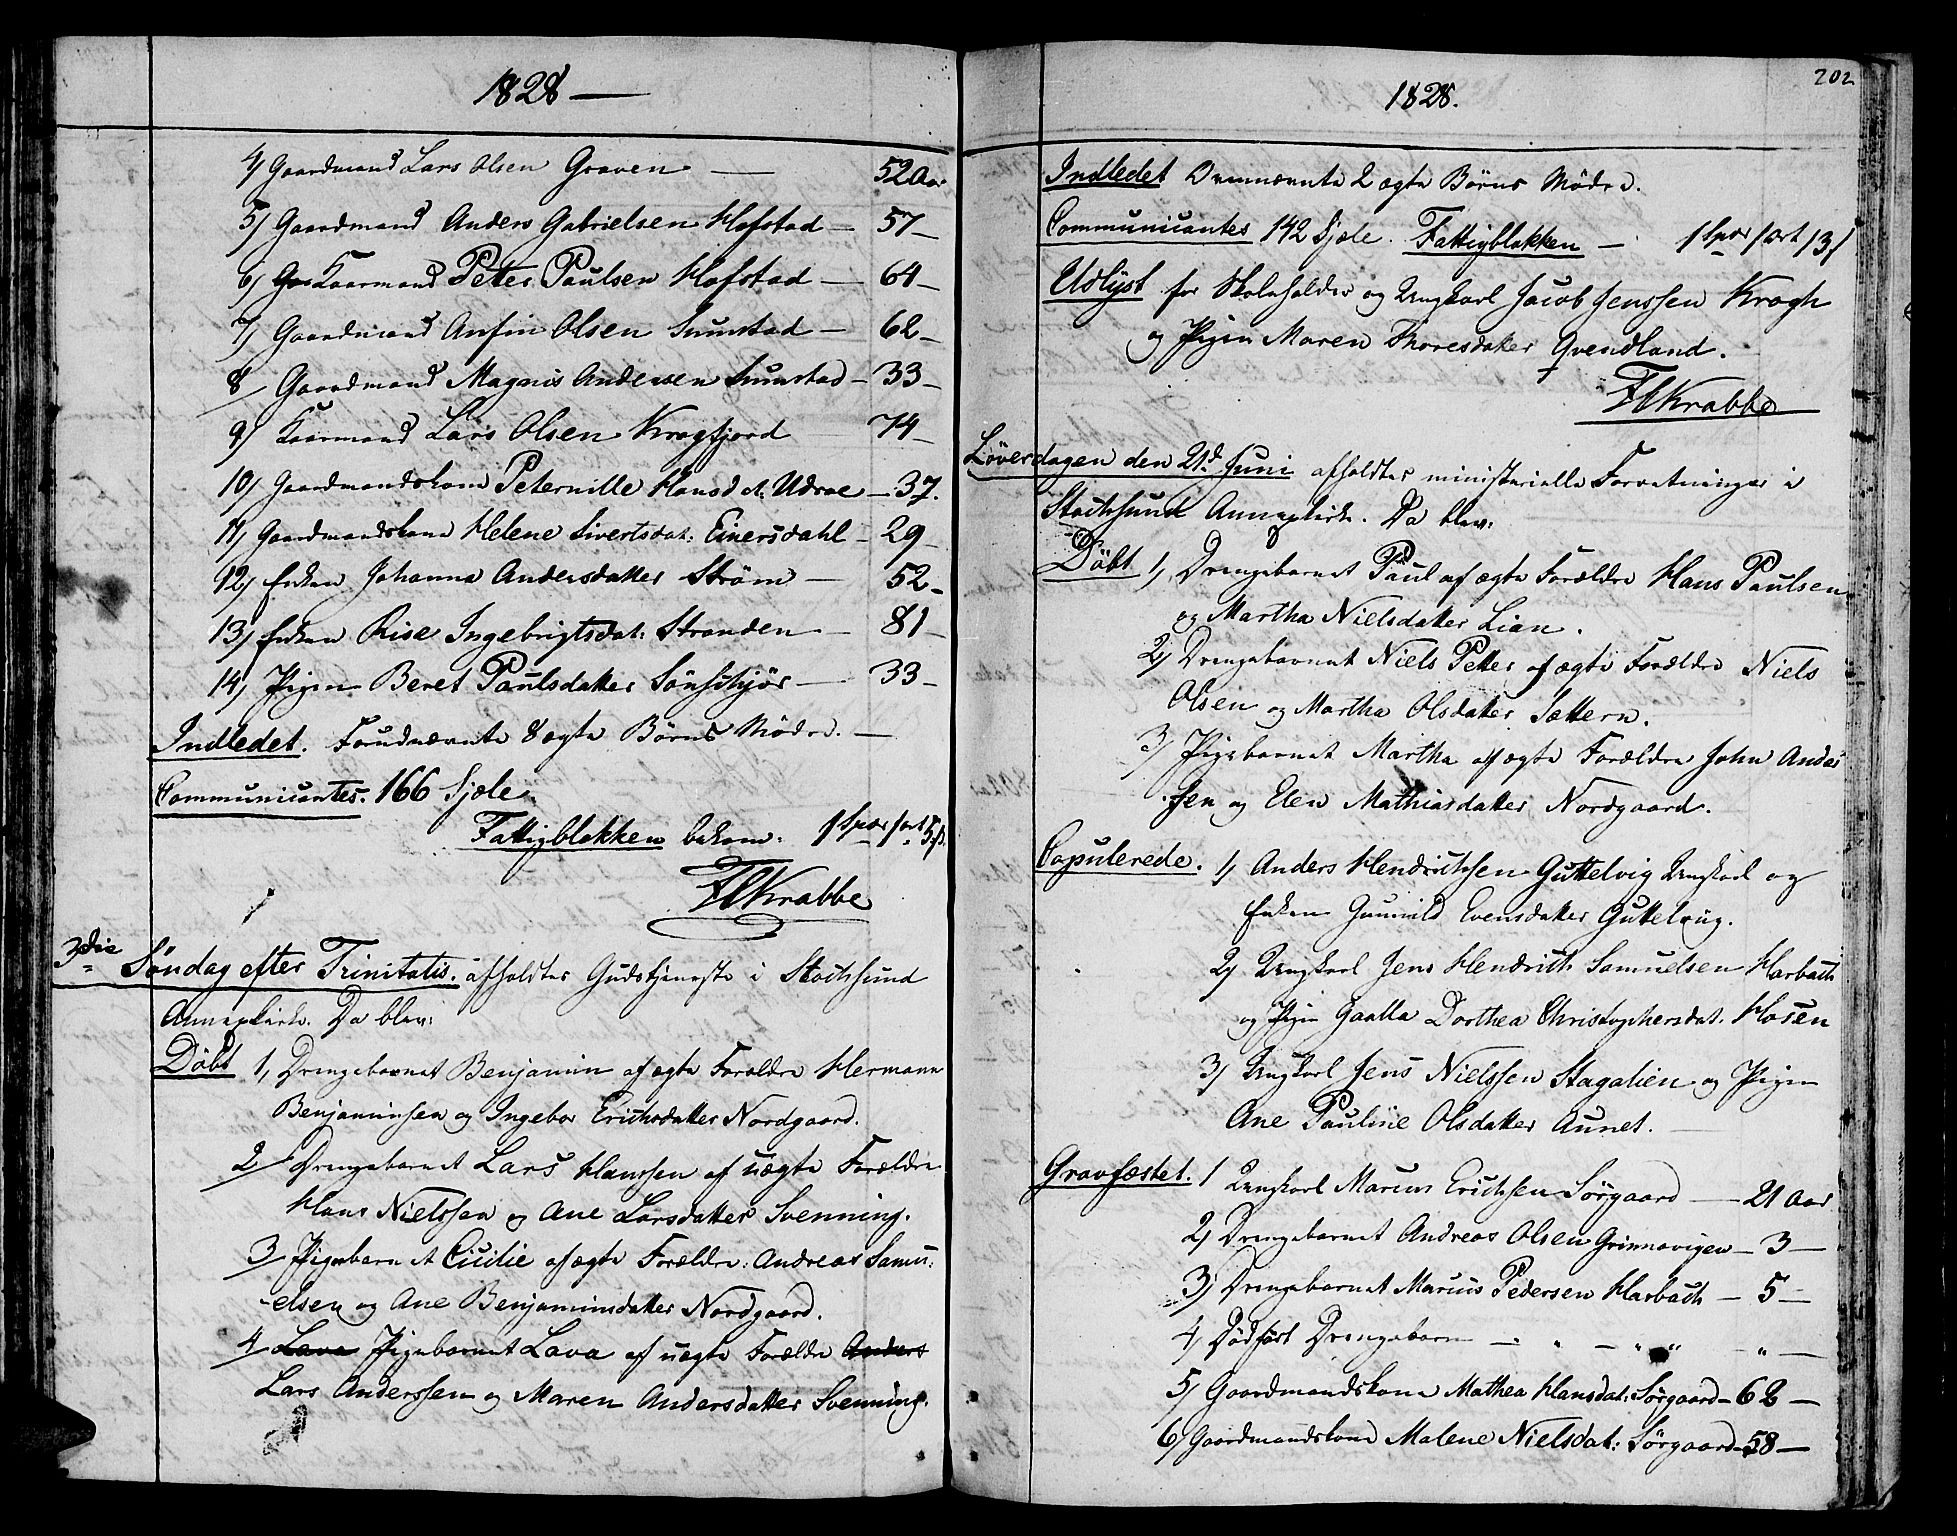 1828 —
4) Gaardmand Lars Olsen Graven — 52 Aar
5) Gaardmand Anders Gabrielsen Hofstad — 57 —
6) Kaarmand Petter Paulsen Hofstad — 64 —
7) Gaardmand Anfin Olsen Sumstad — 62 —
8 Gaardmand Magnis Andersen Sumstad — 33 —
9) Kaarmand Lars Olsen Kragfjord 74 —
10) Gaardmandskone Peternille Hansdat. Udroe — 37.
11) Gaardmandskone Helene Sivertsdat: Einersdahl — 29 —
12) Enken Johanna Andersdatter Strøm — 52 —
13) Enken Risе Ingebrigtsdat: Stranden — 81 —
14) Pigen Beret Paulsdatter Sønschjør — 33 —
Indledet. Forudnævnte 8 ægte Børns Mødre. —
Communicantes. 166 Sjæle.
Fattigblokken bekom: 1 Spec 1 ort 5 s.
FCKrabbe
3die Søndag efter Trinitatis. afholdtes Gudstjeneste i Stochsund
Annexkirke. Da blev:
Døbt 1, Drengebarnet Benjamin af ægte Forældre Hermann
Benjaminsen og Ingebor Erichsdatter Nordgaard.
2 Drengebarnet Lars Hanssen af uægte Forældre
Hans Nielssen og Ane Larsdatter Svenning.
3 Pigebarnet Cicilie af ægte Forældre: Andreas Samu:
-elsen og Ane Benjaminsdatter Nordgaard.
4 Lava Pigebarnet Lava af uægte Forældre Anders
Lars Anderssen og Maren Andersdatter Svenning.
1828.
202
Indledet Ovennævnte 2 ægte Børns Mødre.
Communicantes 142 Sjæle. Fattigblokken — 1 Spec 1 ort 13 s
Udlyst for Skoleholder og Ungkarl Jacob Jenssen Krogh
og Pigen Maren Thoresdatter Qvendland.
FCKrabbe
Løverdagen den 21d Juni afholdtes ministerielle Forretninger i
Stochsund Annexkirke. Da blev:
Døbt 1, Drengebarnet Paul af ægte Forældre Hans Paulsen
og Martha Nielsdatter Lian.
2) Drengebarnet Niels Petter af ægte Forældre Niels
Olsen og Martha Olsdatter Sættern.
3) Pigebarnet Martha af ægte Forældre John Anders
sen og Elen Mathiasdatter Nordgaard.
Copulerede. 1) Anders Hendrichsen Guttelvig Ungkarl og
Enken Gunnild Evensdatter Guttelvig.
2) Ungkarl Jens Hendrich Samuelsen Harbach
og Pigen Gaalla Dorthea Christophersdat. Hosen
3) Ungkarl Jens Nielssen Stagalien og Pigen
Ane Pauline Olsdatter Aunet.
Gravfæstet. 1 Ungkarl Marcus Erichsen Sørgaard — 21 Aar
2) Drengebarnet Andreas Olsen Grinnavigen — 3 —
3) Drengebarnet Marcus Pedersen Harbach — 5 —
4) Dødfødt Drengebarn — " — " " — " —
5) Gaardmandskone Mathea Hansdat: Sørgaard — 62 —
6) Gaardmandskone Malene Nielsdat: Sørgaard — 58 —